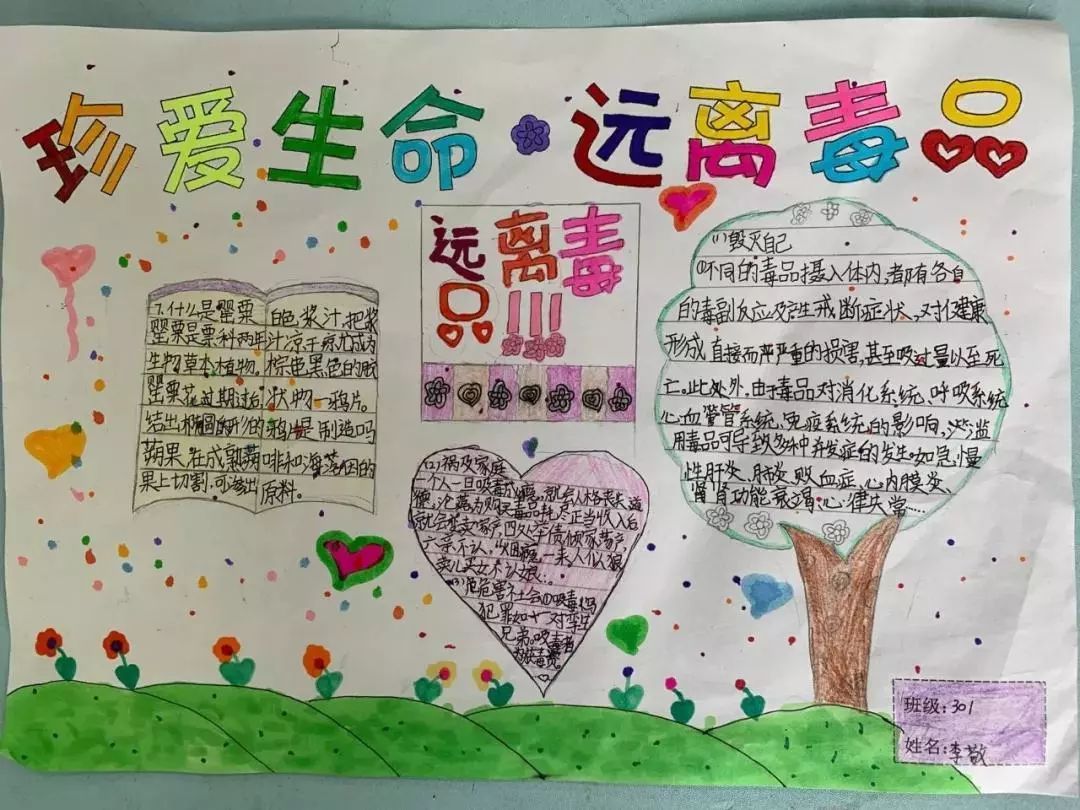 珍爱生命·远离毒品
远离毒品!!!
7.什么是罂粟
罂粟是粟科两年
生物草本植物。
罂粟花过期过后
结出椭圆形的
蒴果在成熟蒴
果上切割,可渗出
白色浆汁,把浆
汁凉干后尤成为
棕色黑色的胶
状物一鸦片。
鸦片是制造吗
啡和海洛因的
原料。
(2)祸及家庭
一个人一旦吸毒成瘾,就会人格丧失道
德,沦
就会变卖家产四处举债倾家荡产,
六亲不认,
卖儿卖女
(3)危害社会①吸毒与
犯罪如一对孪生
兄弟。吸毒者
(1)毁灭自己
①不同的毒品摄入体内,都有各自
的毒副反应及产生戒断症状、对健康
形成直接而严严重的损害,甚至吸过量以至死
亡。此处外,由于毒品对消化系统、呼吸系统
心血管系统、免疫系统的影响,滥
用毒品可导致多种并发症的发生,如急慢
性肝炎、肺炎、败血症、心内膜炎、
肾功能衰竭、心律失常……
班级:301
姓名:李敬